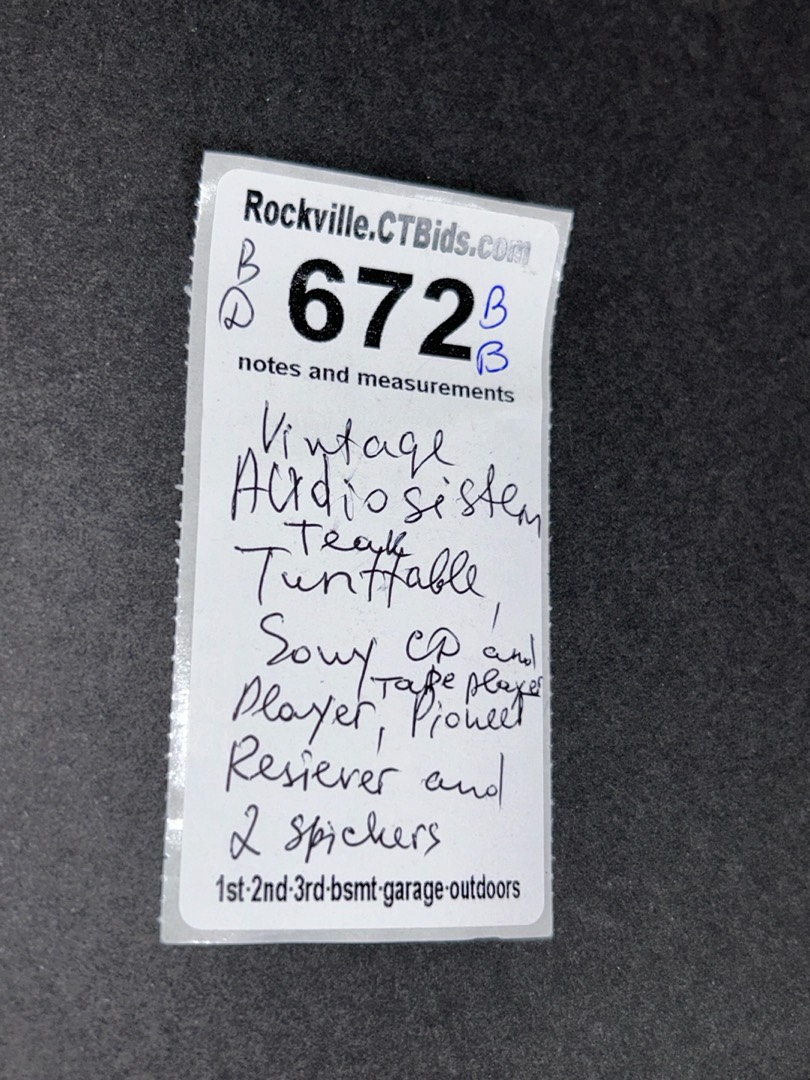 Rockville.CTBids.com
B
D
672
B
B
notes and measurements
Vintage
Audiosistem
Teak
Turttable,
Sony CD and
Tape player
Player, Pioneer
Resiever and
2 Spickers
1st·2nd·3rd·bsmt·garage·outdoors